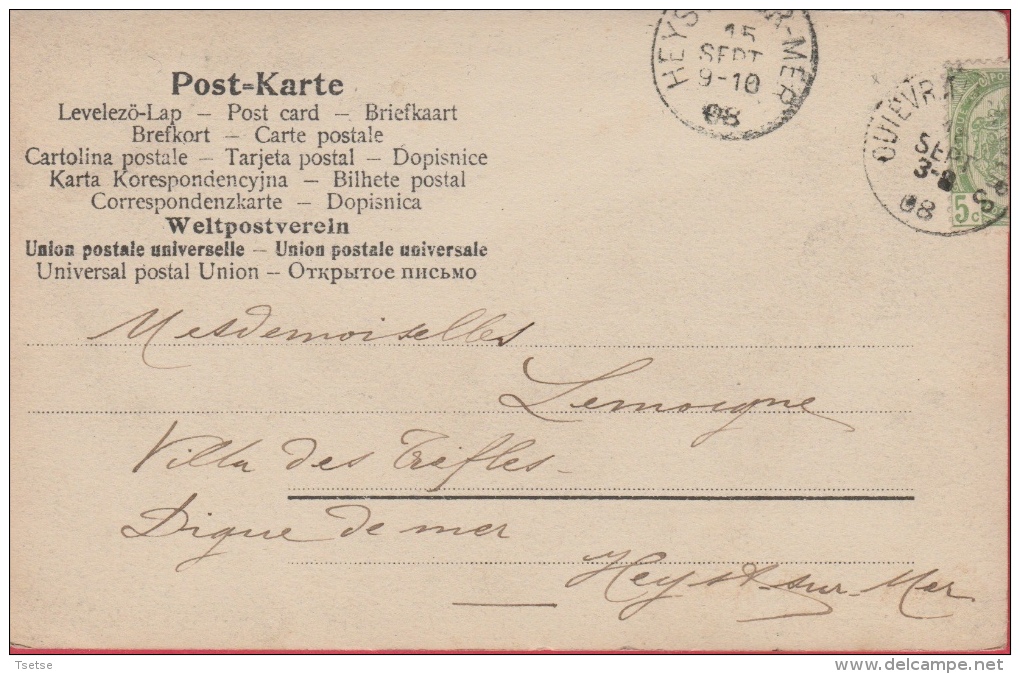 HEYS R-MER
15
SEPT
9-10
08
QUIEVRA
SEPT
3-
08
5c
Post=Karte
Levelezö-Lap – Post card – Briefkaart
Brefkort – Carte postale
Cartolina postale – Tarjeta postal – Dopisnice
Karta Korespondencyjna – Bilhete postal
Correspondenzkarte – Dopisnica
Weltpostverein
Union postale universelle – Union postale universale
Universal postal Union – Открытое письмо
Mesdemoiselles
Lemoigne
Villa des Trèfles -
Digue de mer
Heyst-sur-Mer
Tsetse
www.delcampe.net